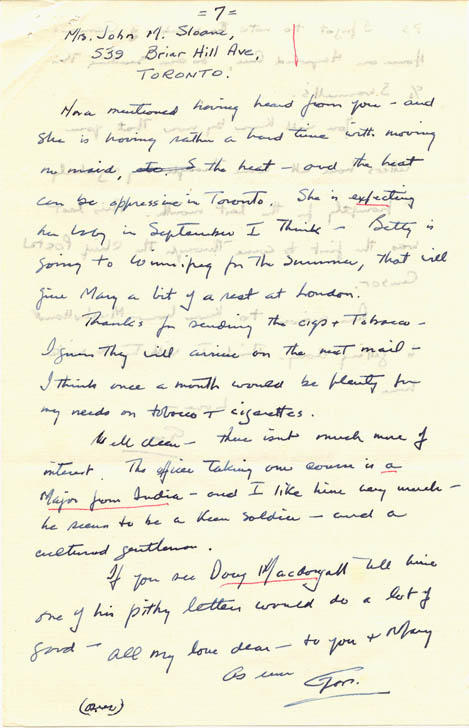 = 7 =
Mrs. John M. Sloane,
539 Briar Hill Ave,
TORONTO.
Nora mentioned having heard from you - and
she is having rather a hard time with moving
no maid, etc & the heat - and the heat
can be oppressive in Toronto. She is expecting
her baby in September I think - Betty is
going to Winnipeg for the Summer, that will
give Mary a bit of a rest at London.
Thanks for sending the cigs + Tobacco -
I guess they will arrive on the next mail -
I think once a month would be plenty for
my needs on tobacco + cigarettes.
Well dear - there isnt much more of
interest. The officer taking our course is a
Major from India - and I like him very much -
he seems to be a keen soldier - and a
cultured gentleman.
If you see Doug Macdougall tell him
one of his pithy letters would do a lot of
good - all my love dear - to you + Mary
As ever
Gor.
(over)